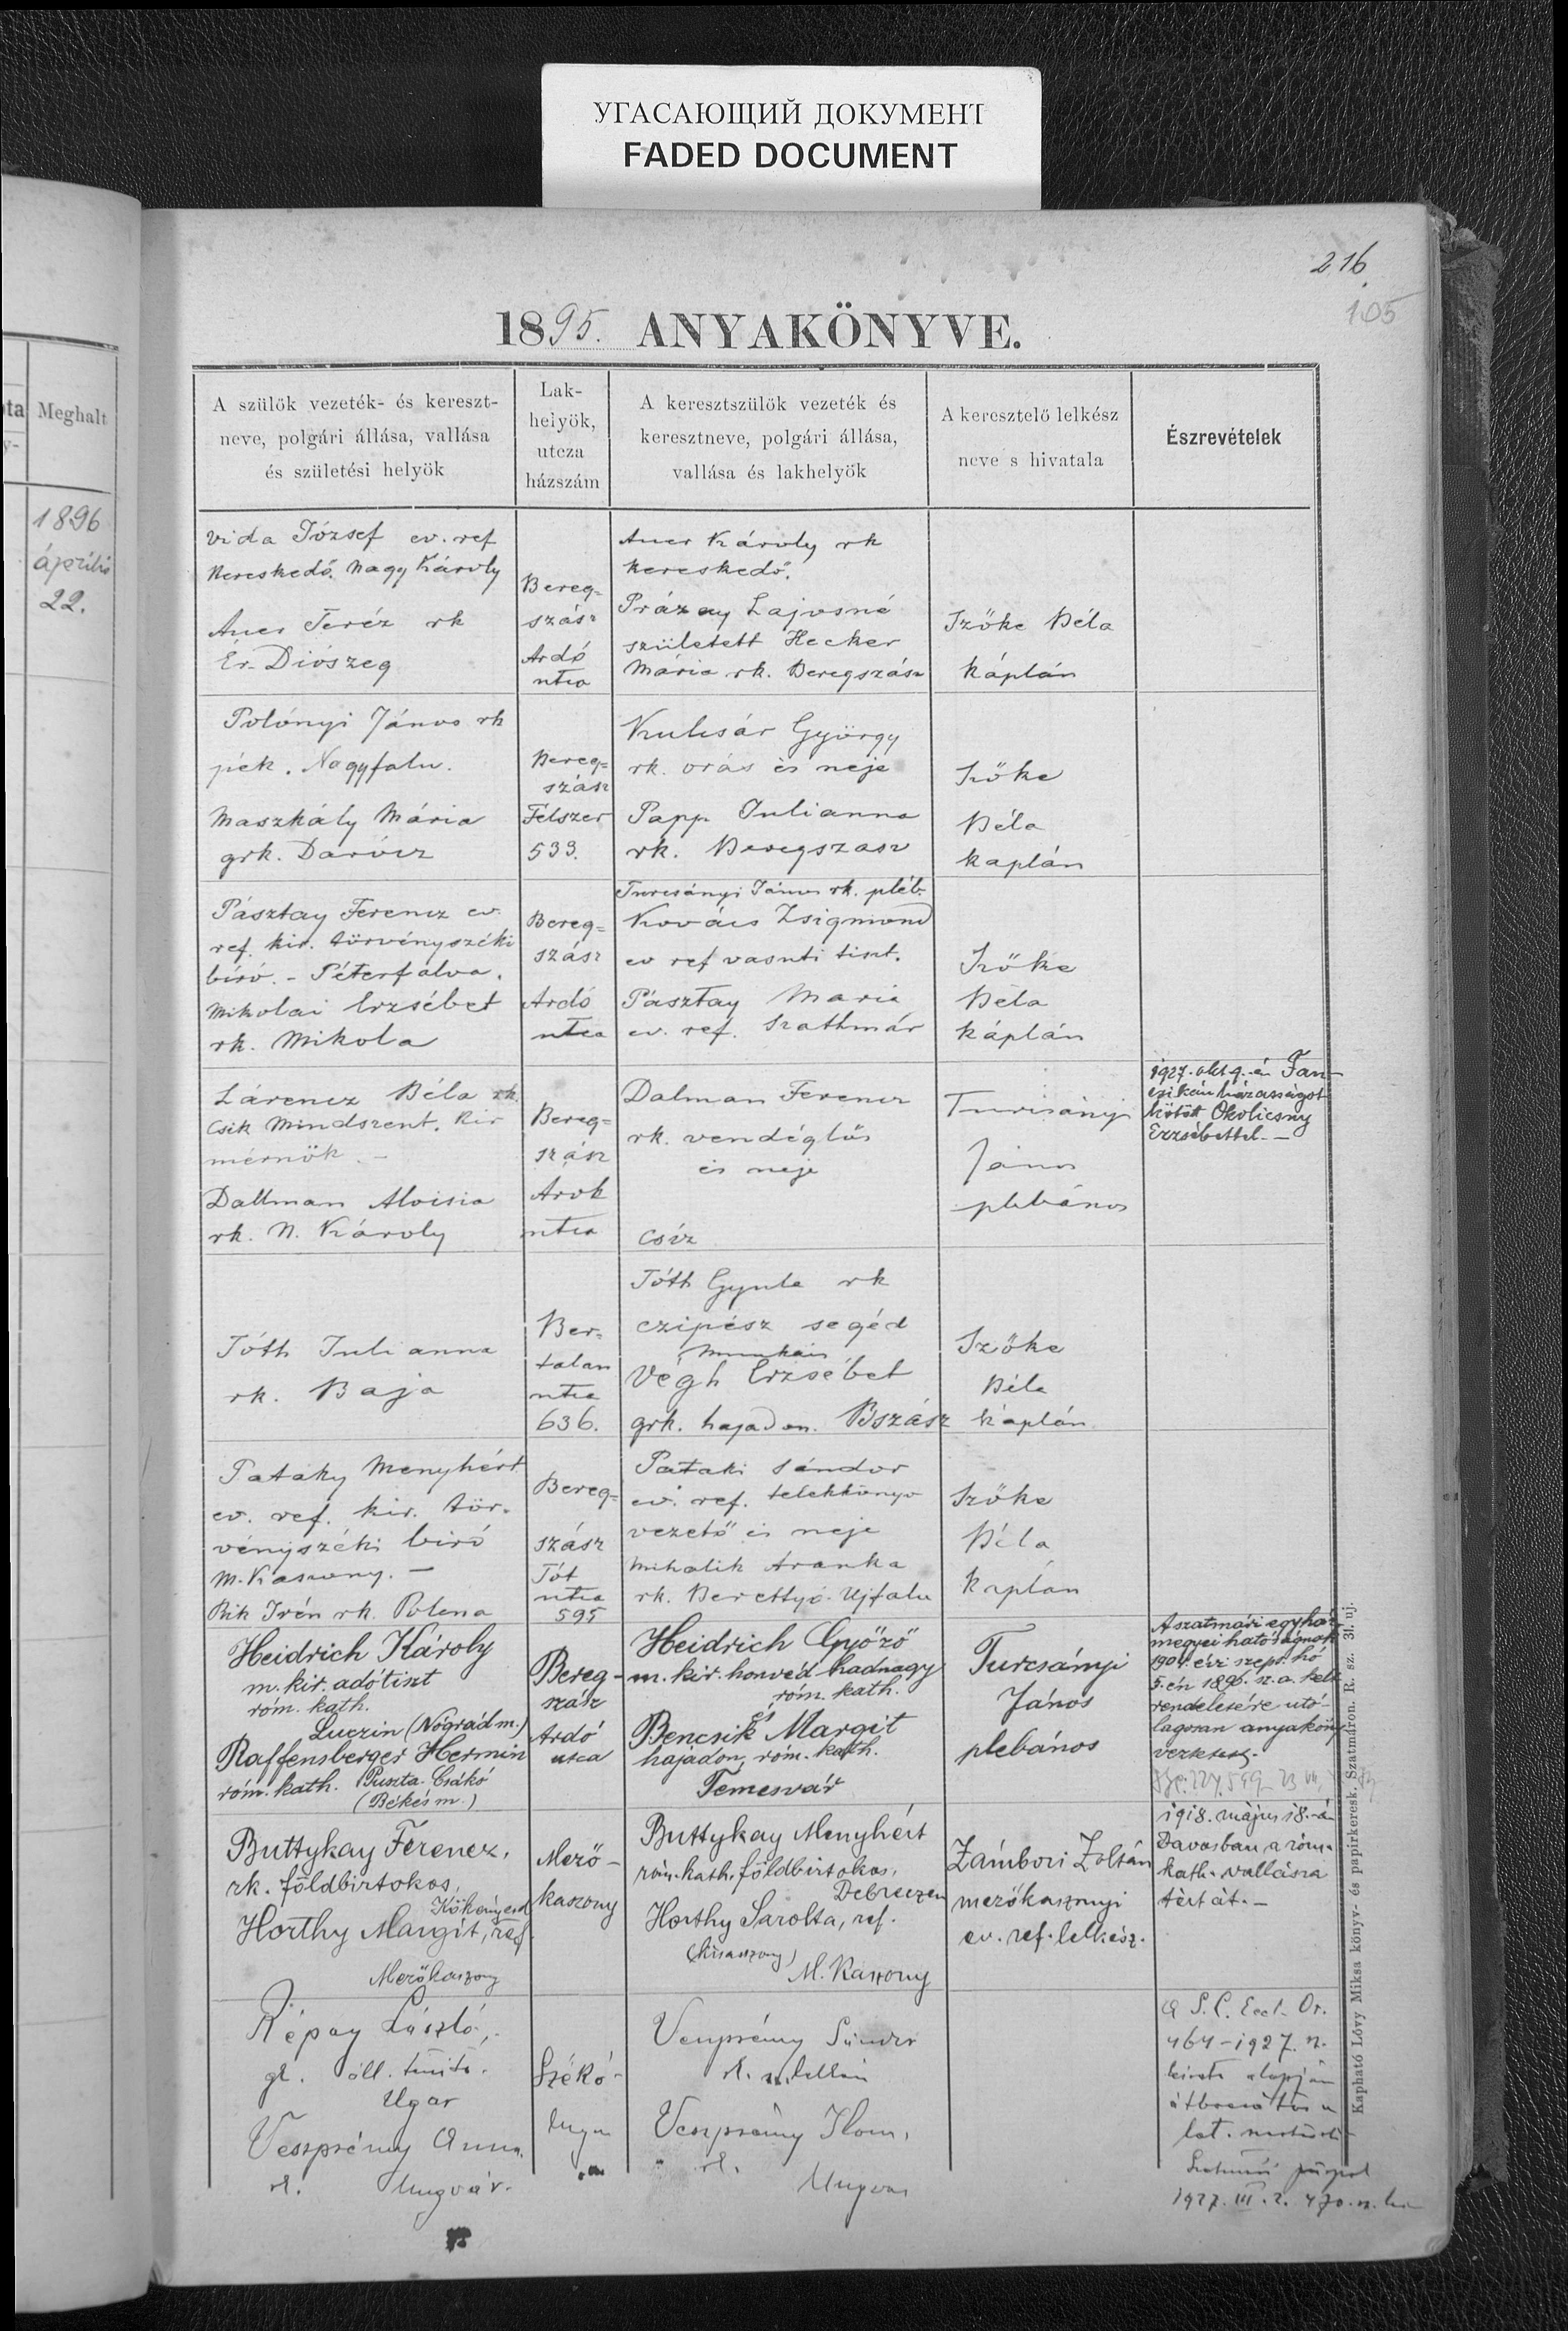 УГАСАЮЩИЙ ДОКУМЕНТ
FADED DOCUMENT
216
105
1895. ANYAKÖNYVE.
Meghalt
1896
április
22.
A szülők vezeték- és kereszt-
neve, polgári állása, vallása
és születési helyök
Lak-
helyök,
utcza
házszám
A keresztszülők vezeték és
keresztneve, polgári állása,
vallása és lakhelyök
A keresztelő lelkész
neve s hivatala
Észrevételek
Vida József ev. ref
kereskedő. Nagy Károly
Auer Teréz rk
Ér-Diószeg
Bereg-
szász
Ardó
utca
Auer Károly rk
kereskedő.
Prázay Lajosné
született Hecker
Mária rk. Beregszász
Szőke Béla
káplán
Polónyi János rk
pék. Nagyfalu.
Maszkály Mária
grk. Darócz
Bereg-
szász
Félszer
533.
Kulcsár György
rk. orás és neje
Papp Julianna
rk. Beregszasz
Szőke
Béla
kaplán
Pásztay Ferencz ev.
ref. kir. törvényszéki
biró. - Péterfalva.
Mikolai Erzsébet
rk. Mikola
Bereg-
szász
Ardó
utca
Turcsányi János rk. pléb.
Kovács Zsigmond
ev ref vasuti tiszt.
Pásztay Maria
ev. ref. Szathmár
Szőke
Béla
káplán
Lárencz Béla rk.
Csik Mindszent. Kir
mérnök. -
Dallman Aloisia
rk. N. Károly
Bereg-
szász
Arok
utca
Dalman Ferencz
rk. vendéglős
és neje
Csíz
Turcsányi
János
plebános
1927. okt 9.-én Fan-
csikán házasságot
kötött Okolicsny
Erzsébettel. -
Tóth Julianna
rk. Baja
Ber-
talan
utca
636.
Tóth Gyula rk
czipész segéd
Munkács
Végh Erzsébet
grk. hajadon. Bszász
Szőke
Béla
káplán
Pataky Menyhért
ev. ref. kir. tör-
vényszéki biró
M. Kaszony. -
Bik Irén rk. Polena
Bereg-
szász
Tót
utca
595
Pataki Sándor
ev. ref. telekkönyv
vezető és neje
Mihalik Aranka
rk. Berettyó-Ujfalu
Szőke
Béla
káplán
Heidrich Károly
m. kir. adótiszt
róm. kath.
Luczin (Nógrád m.)
Raffensberger Hermin
róm. kath. Puszta-Csákó
(Békés m.)
Bereg-
szász
Ardó
utca
Heidrich Győző
m. kir. honvéd hadnagy
róm. kath.
és
Bencsik Margit
hajadon, róm. kath.
Temesvár
Turcsányi
János
plebános
A szatmári egyház-
megyei hatóságnak
1904. évi szept. hó
5.-én 1896. sz. a. kelt
rendeletére utó-
lagosan anyaköny-
Buttykay Ferencz,
rk. földbirtokos,
Kökényesd
Horthy Margit, ref.
Mezőkaszony
Mező-
kaszony
Buttykay Menyhért
róm. kath. földbirtokos,
Debreczen
Horthy Sarolta, ref.
(kisasszony)
M. Kaszony
Zámbori Zoltán
mezőkaszonyi
ev. ref. lelkész.
1918. május 18.-án
Davosban a róm.
kath. vallásra
tért át. -
Répay László,
gk. áll. tanító.
Ugar
Veszprémy Anna
rk. Ungvár.
Veszprémy Sándor
Veszprémy Ilona,
rk.
Ungvar
464-1927. n.
alapján
1927. III. 2. 470. n.
Kapható Lövy Miksa könyv- és papirkeresk. Szatmáron. R. sz. 3l. uj.